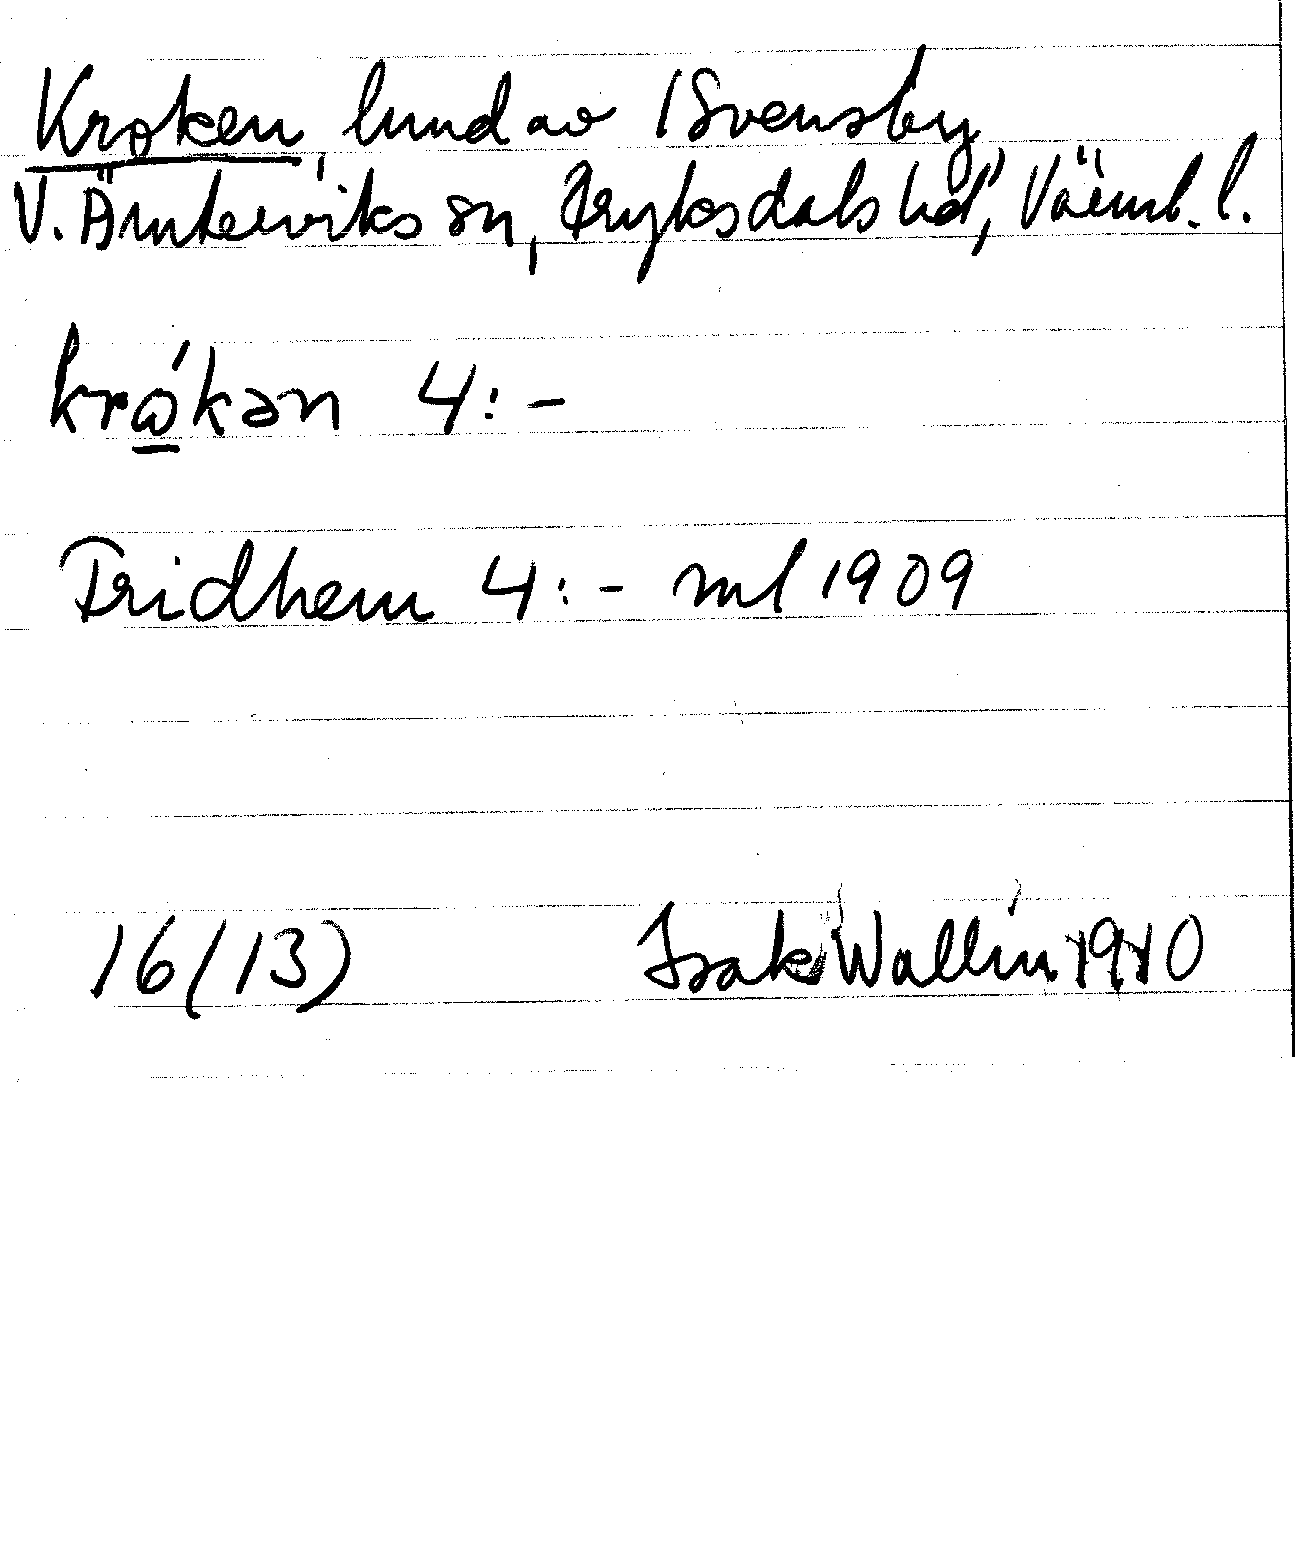 Kroken, lund av 1 Svensby,
V. Ämterviks sn, Fryksdals hd, Värml. l.
krώ̲kən 4:-
Fridhem 4:- ml 1909
16(13) Isak Wallin 1910